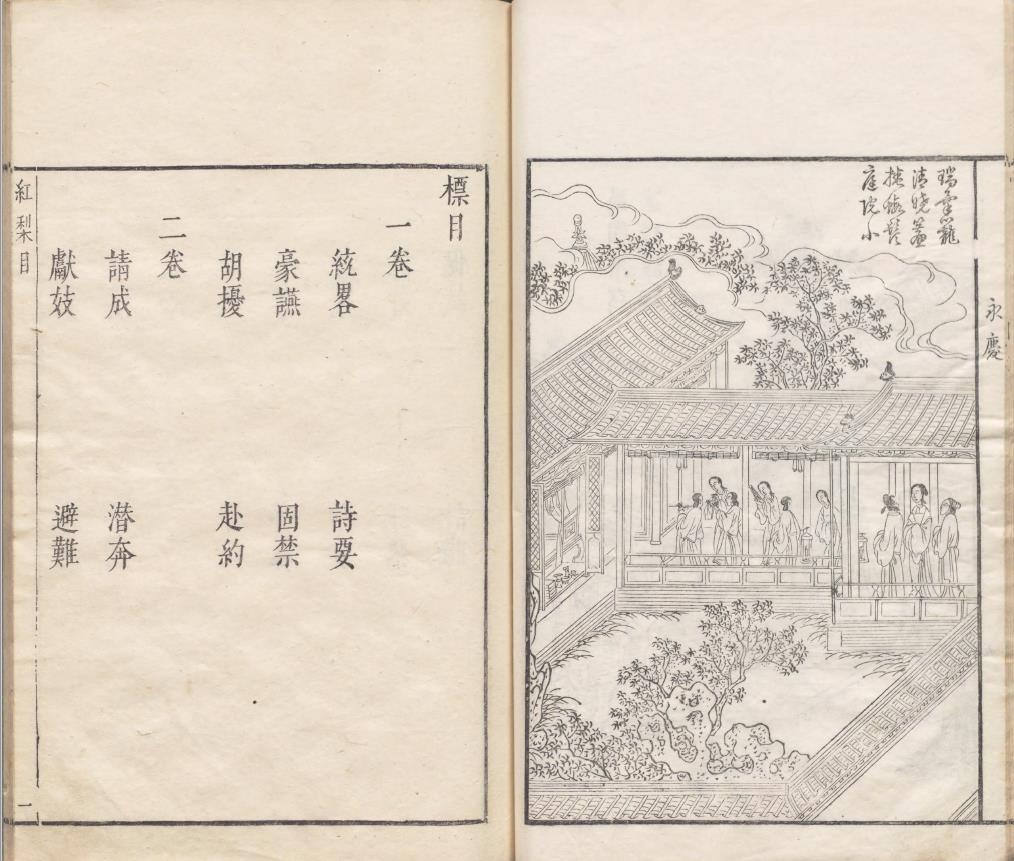 永慶
瑞籠
清曉
庭院小
標目
一卷
統畧 詩要
豪讌 固禁
胡擾 赴約
二卷
請成 潛奔
獻妓 避難
紅梨目 一